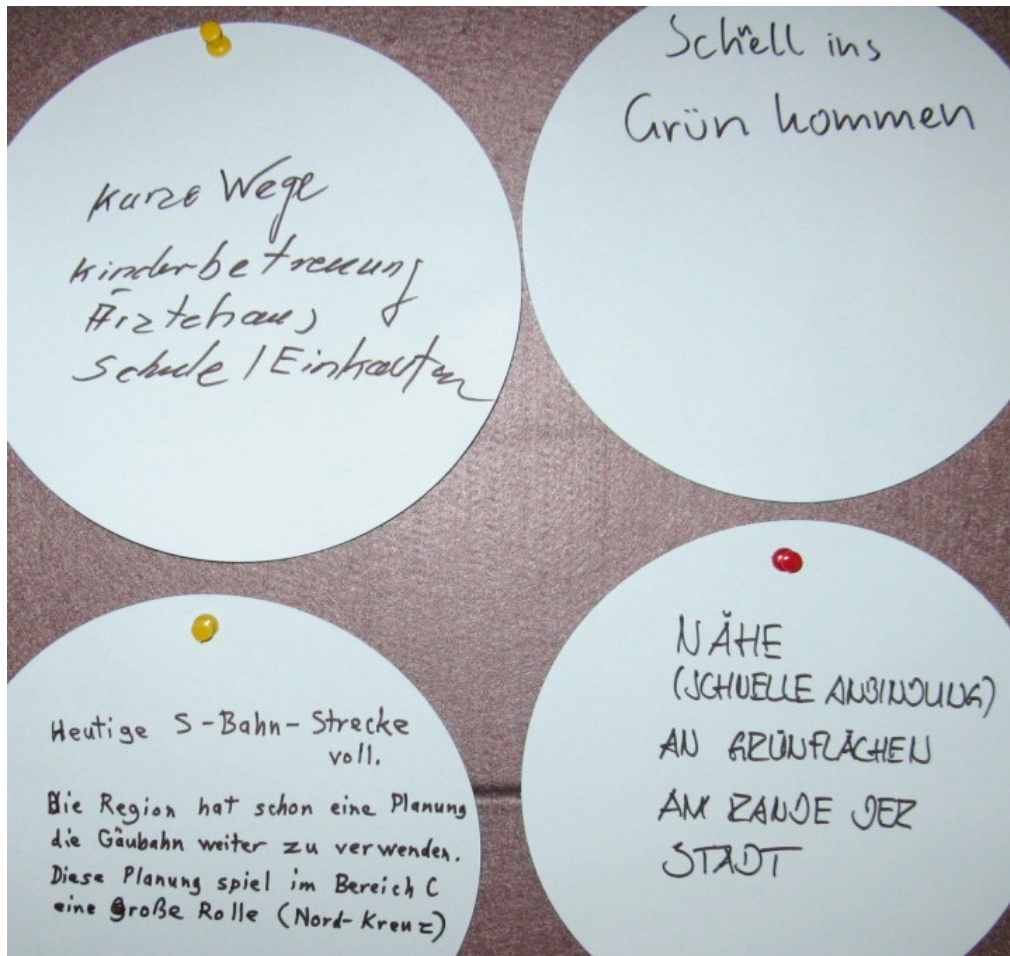 Kurze Wege
Kinderbetreuung
Ärztehaus
Schule / Einkaufen
Schnell ins
Grün kommen
Heutige S-Bahn-Strecke
voll.
Die Region hat schon eine Planung
die Gäubahn weiter zu verwenden.
Diese Planung spiel im Bereich C
eine große Rolle (Nord-Kreuz)
NÄHE
(SCHNELLE ANBINDUNG)
AN GRÜNFLÄCHEN
AM RANDE DER
STADT